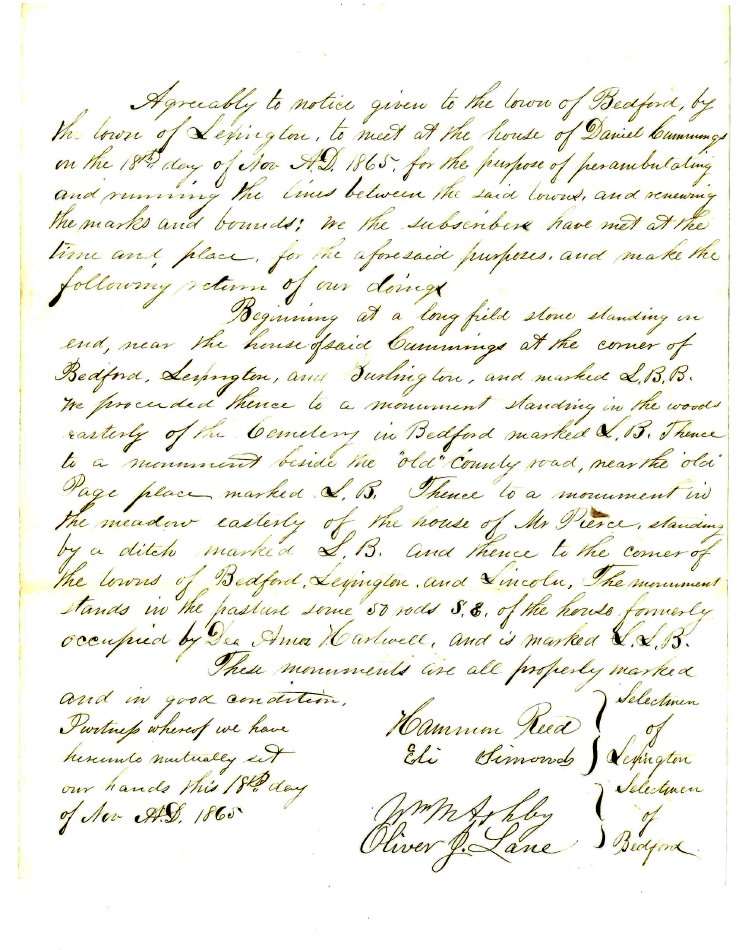 Agreeably to notice given to the town of Bedford, by
the town of Lexington, to meet at the house of Daniel Cummings
on the 18th day of Nov A.D. 1865. for the purpose of perambulating
and running the lines between the said towns, and renewing
the marks and bounds; we the subscribers have met at the
time and place, for the aforesaid purposes, and make the
following return of our doings
Beginning at a long field stone standing on
end, near the house of said Cummings at the corner of
Bedford, Lexington, and Burlington, and marked L.B.B.
We proceeded thence to a monument standing in the woods
easterly of the Cemetery in Bedford marked L.B. Thence
to a monument beside the "old" County road, near the "old"
Page place marked L.B. Thence to a monument in
the meadow easterly of the house of Mr Pierce, standing
by a ditch marked L.B. and thence to the corner of
the towns of Bedford, Lexington, and Lincoln, The monument
stands in the pasture some 50 rods S.E. of the house formerly
occupied by Dea Amos Hartwell, and is marked L.L.B.
These monuments are all properly marked
and in good condition.
In witness whereof we have
hereunto mutually set
our hands this 18th day
of Nov A.D. 1865
Hammon Reed
Eli Simonds
Selectmen
of
Lexington
Wm M Ashby
Oliver J. Lane
Selectmen
of
Bedford